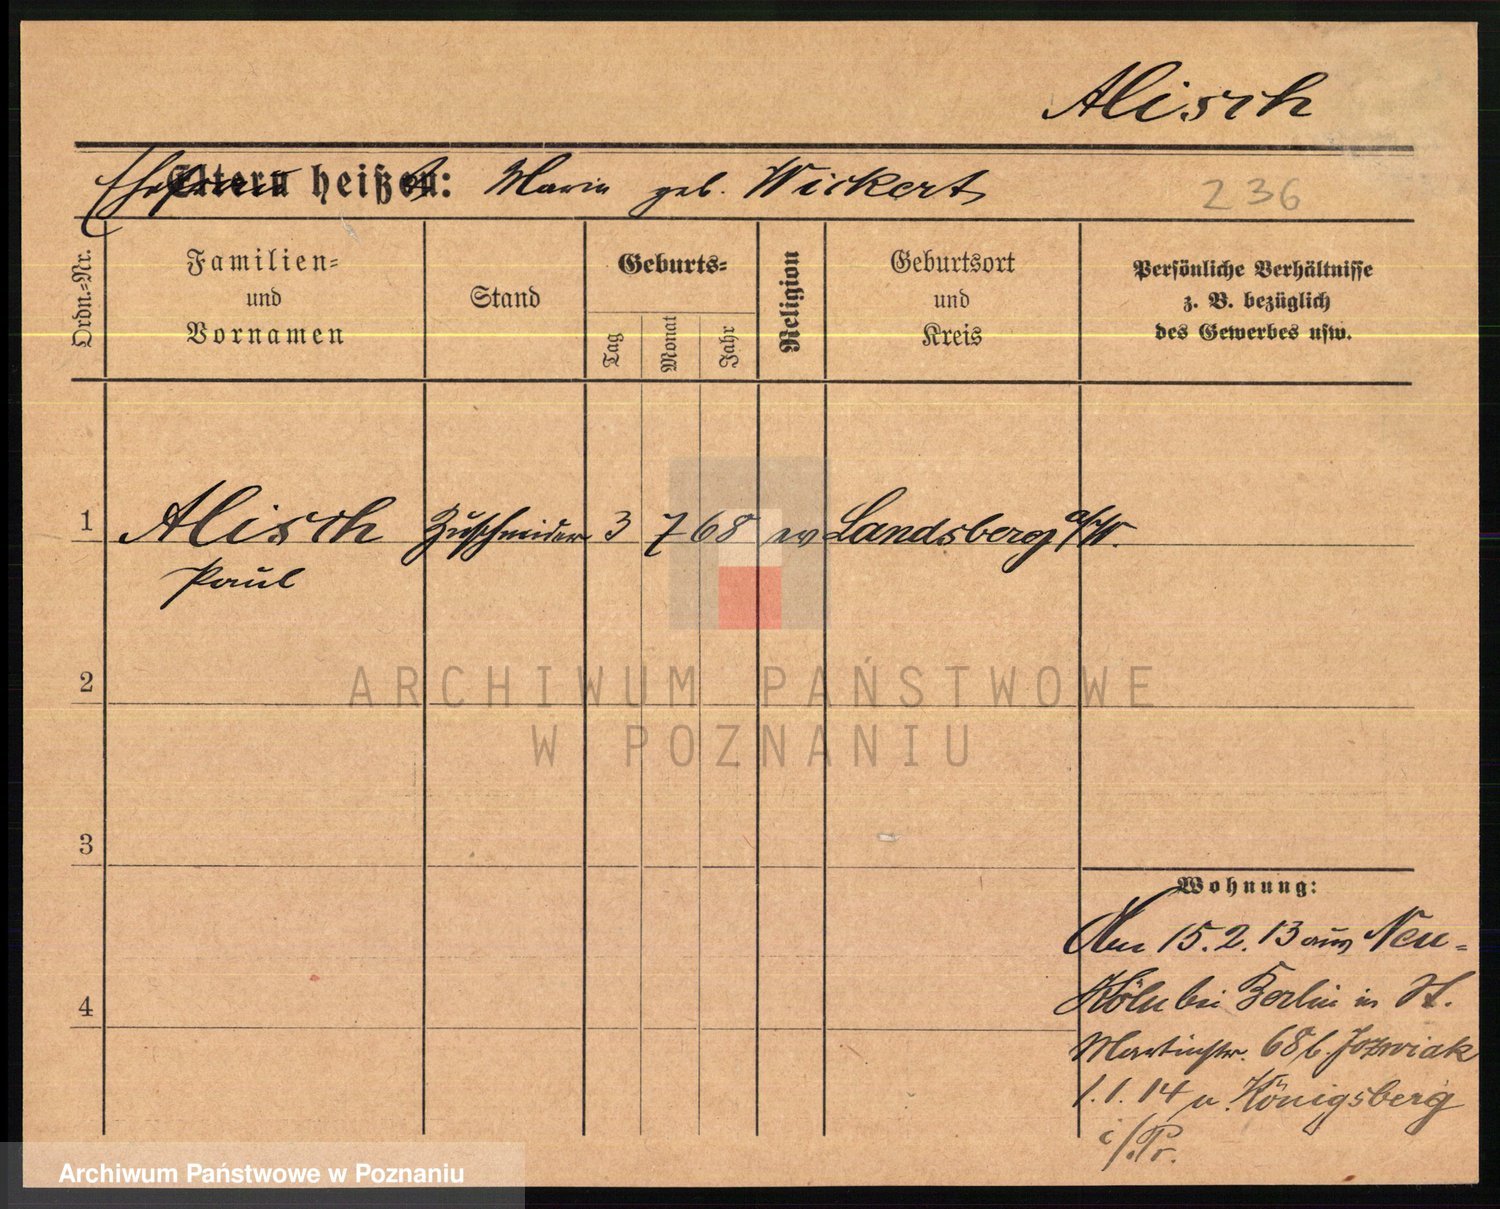 Alisch
Ehefrau heißt: Marie geb. Wickert
236
Ordn.-Nr.
Familien-
und
Vornamen
Stand
Geburts-
Tag
Monat
Jahr
Religion
Geburtsort
und
Kreis
Persönliche Verhältnisse
z. B. bezüglich
des Gewerbes usw.
1 Alisch Zuschneider 3 7 68 ev Landsberg a/W.
Paul
2
3
4
Wohnung:
Am 15.2.13 aus Neu-
Köln bei Berlin in St.
Martinstr. 68 b. Jozwiak
1.1.14 n. Königsberg
i/Pr.
ARCHIWUM PAŃSTWOWE
W POZNANIU
Archiwum Państwowe w Poznaniu